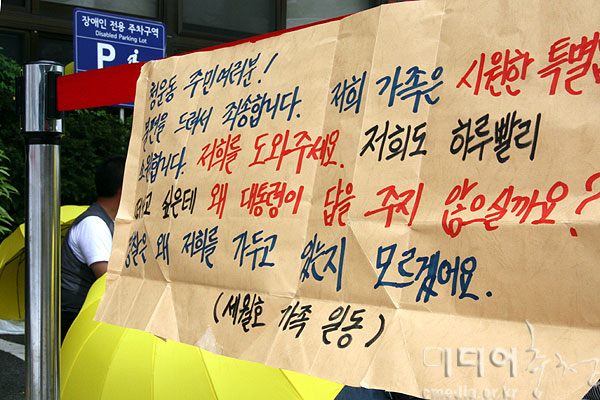 장애인 전용 주차구역
Disabled Parking Lot
P
청운동 주민여러분!
불편을 드려서 죄송합니다. 저희 가족은 시원한 특별법
소원합니다. 저희를 도와주세요. 저희도 하루빨리
싶은데 왜 대통령이 답을 주지 않으실까요?
경찰은 왜 저희를 가두고 있는지 모르겠어요.
(세월호 가족 일동)
미디어충청
cmedia.or.kr